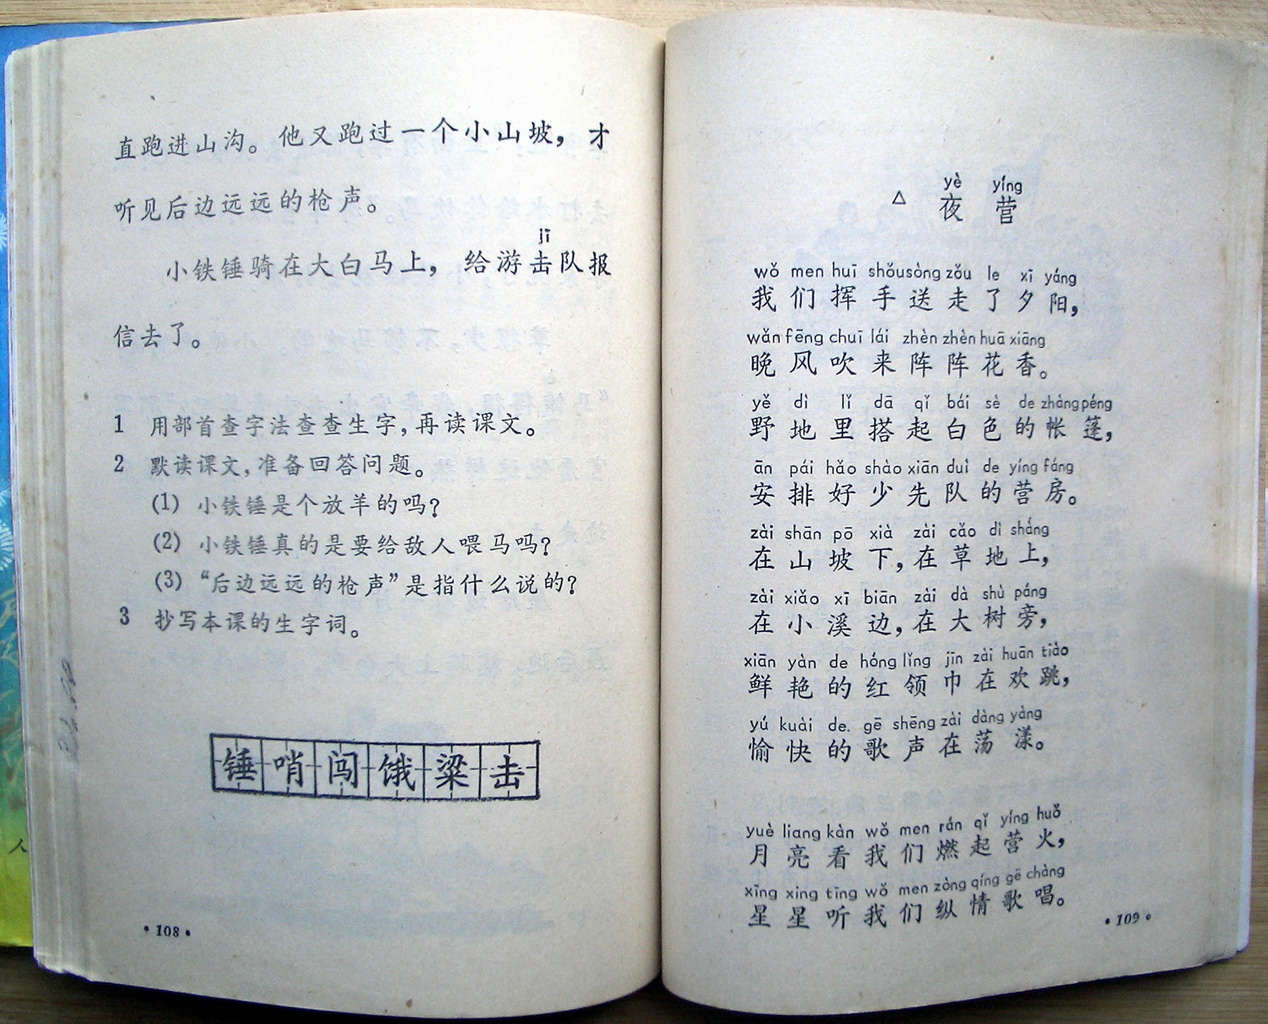 直跑进山沟。他又跑过一个小山坡，才
听见后边远远的枪声。
jī
小铁锤骑在大白马上，给游击队报
信去了。
1 用部首查字法查查生字，再读课文。
2 默读课文，准备回答问题。
(1) 小铁锤是个放羊的吗？
(2) 小铁锤真的是要给敌人喂马吗？
(3) “后边远远的枪声”是指什么说的？
3 抄写本课的生字词。
锤哨闯饿粱击
•108•
yè yíng
△ 夜营
wǒ men huī shǒu sòng zǒu le xī yáng
我们挥手送走了夕阳，
wǎn fēng chuī lái zhèn zhèn huā xiāng
晚风吹来阵阵花香。
yě dì lǐ dā qǐ bái sè de zhàng péng
野地里搭起白色的帐篷，
ān pái hǎo shào xiān duì de yíng fáng
安排好少先队的营房。
zài shān pō xià zài cǎo dì shàng
在山坡下，在草地上，
zài xiǎo xī biān zài dà shù páng
在小溪边，在大树旁，
xiān yàn de hóng lǐng jīn zài huān tiào
鲜艳的红领巾在欢跳，
yú kuài de gē shēng zài dàng yàng
愉快的歌声在荡漾。
yuè liang kàn wǒ men rán qǐ yíng huǒ
月亮看我们燃起营火，
xīng xing tīng wǒ men zòng qíng gē chàng
星星听我们纵情歌唱。
•109•
人